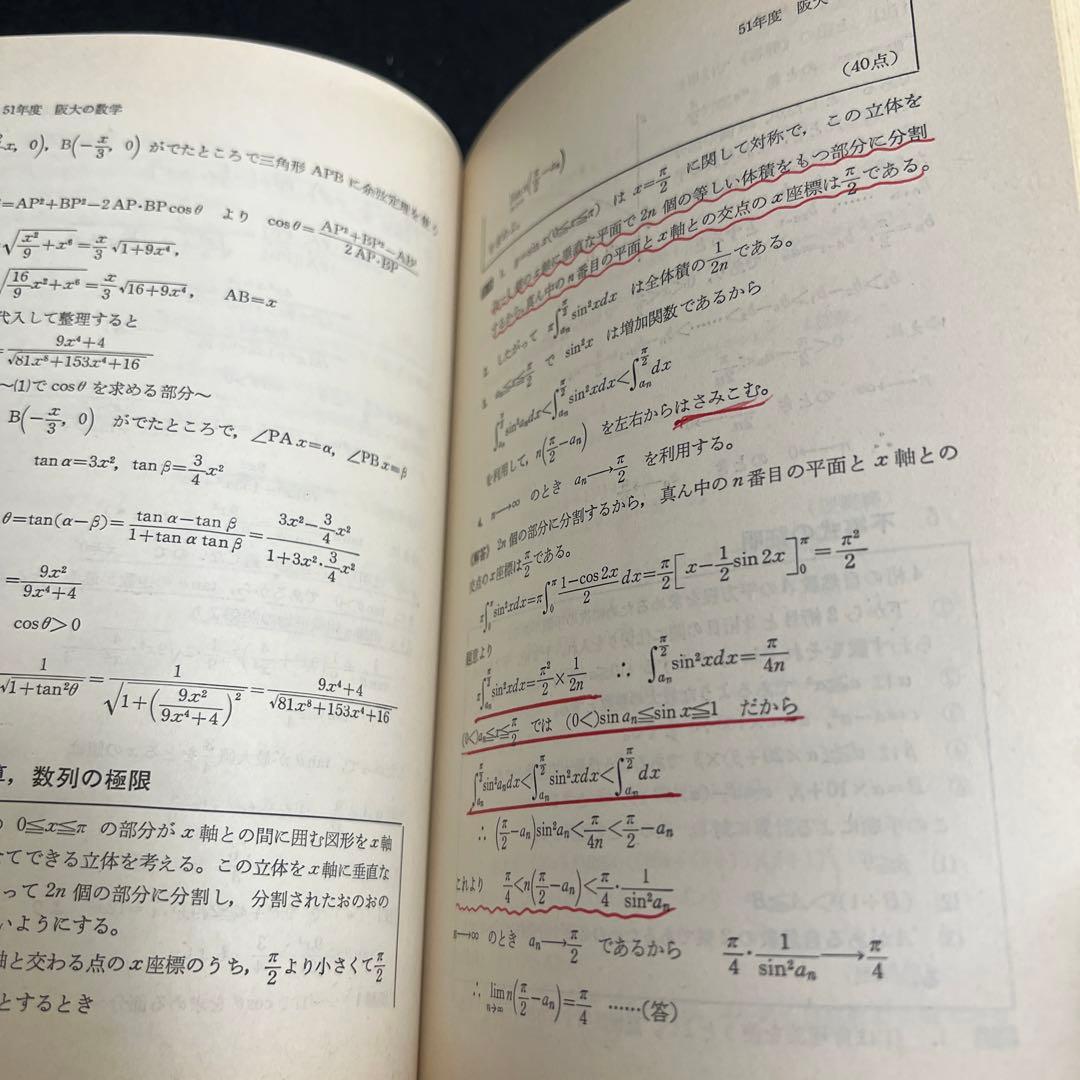 51年度 阪大の数学
x, 0), B(-x/3, 0) がでたところで三角形 APB に余弦定理を使う
=AP²+BP²-2AP・BPcosθ より cosθ=(AP²+BP²-AB²)/(2AP・BP)
√(x²/9+x⁶)=x/3√(1+9x⁴),
√(16/9x²+x⁶)=x/3√(16+9x⁴), AB=x
代入して整理すると
=(9x⁴+4)/√(81x⁸+153x⁴+16)
～(1)で cosθ を求める部分～
B(-x/3, 0) がでたところで, ∠PAx=α, ∠PBx=β
tanα=3x², tanβ=3/4x²
θ=tan(α-β)=(tanα-tanβ)/(1+tanα tanβ)=(3x²-3/4x²)/(1+3x²・3/4x²)
=9x²/(9x⁴+4)
cosθ>0
1/√(1+tan²θ)=1/√(1+(9x²/(9x⁴+4))²)=(9x⁴+4)/√(81x⁸+153x⁴+16)
算, 数列の極限
0≦x≦π の部分が x 軸との間に囲む図形を x 軸
てできる立体を考える。この立体を x 軸に垂直な
って 2n 個の部分に分割し, 分割されたおのおの
いようにする。
軸と交わる点の x 座標のうち, π/2 より小さくて π/2
とするとき
51年度 阪大
(40点)
lim n(π/2-aₙ)
1. y=sin x(0≦x≦π) は x=π/2 に関して対称で, この立体を
x軸に垂直な平面で 2n 個の等しい体積をもつ部分に分割
するから, 真ん中の n 番目の平面と x 軸との交点の x 座標は π/2 である。
2. したがって π∫[aₙ→π/2]sin²xdx は全体積の 1/2n である。
3. aₙ≦x≦π/2 で sin²x は増加関数であるから
∫[aₙ→π/2]sin²aₙdx<∫[aₙ→π/2]sin²xdx<∫[aₙ→π/2]dx
を利用して, n(π/2-aₙ) を左右からはさみこむ。
4. n→∞ のとき aₙ→π/2 を利用する。
《解答》 2n 個の部分に分割するから, 真ん中の n 番目の平面と x 軸との
交点の x 座標は π/2 である。
π∫[0→π]sin²xdx=π∫[0→π](1-cos2x)/2 dx=π/2[x-1/2sin2x]₀^π=π²/2
題意より
π∫[aₙ→π/2]sin²xdx=π²/2×1/2n ∴ ∫[aₙ→π/2]sin²xdx=π/4n
(0<)aₙ≦x≦π/2 では (0<)sin aₙ≦sin x≦1 だから
∫[aₙ→π/2]sin²aₙdx<∫[aₙ→π/2]sin²xdx<∫[aₙ→π/2]dx
∴ (π/2-aₙ)sin²aₙ<π/4n<π/2-aₙ
これより π/4<n(π/2-aₙ)<π/4・1/sin²aₙ
n→∞ のとき aₙ→π/2 であるから π/4・1/sin²aₙ→π/4
∴ lim n→∞ n(π/2-aₙ)=π/4 ……(答)